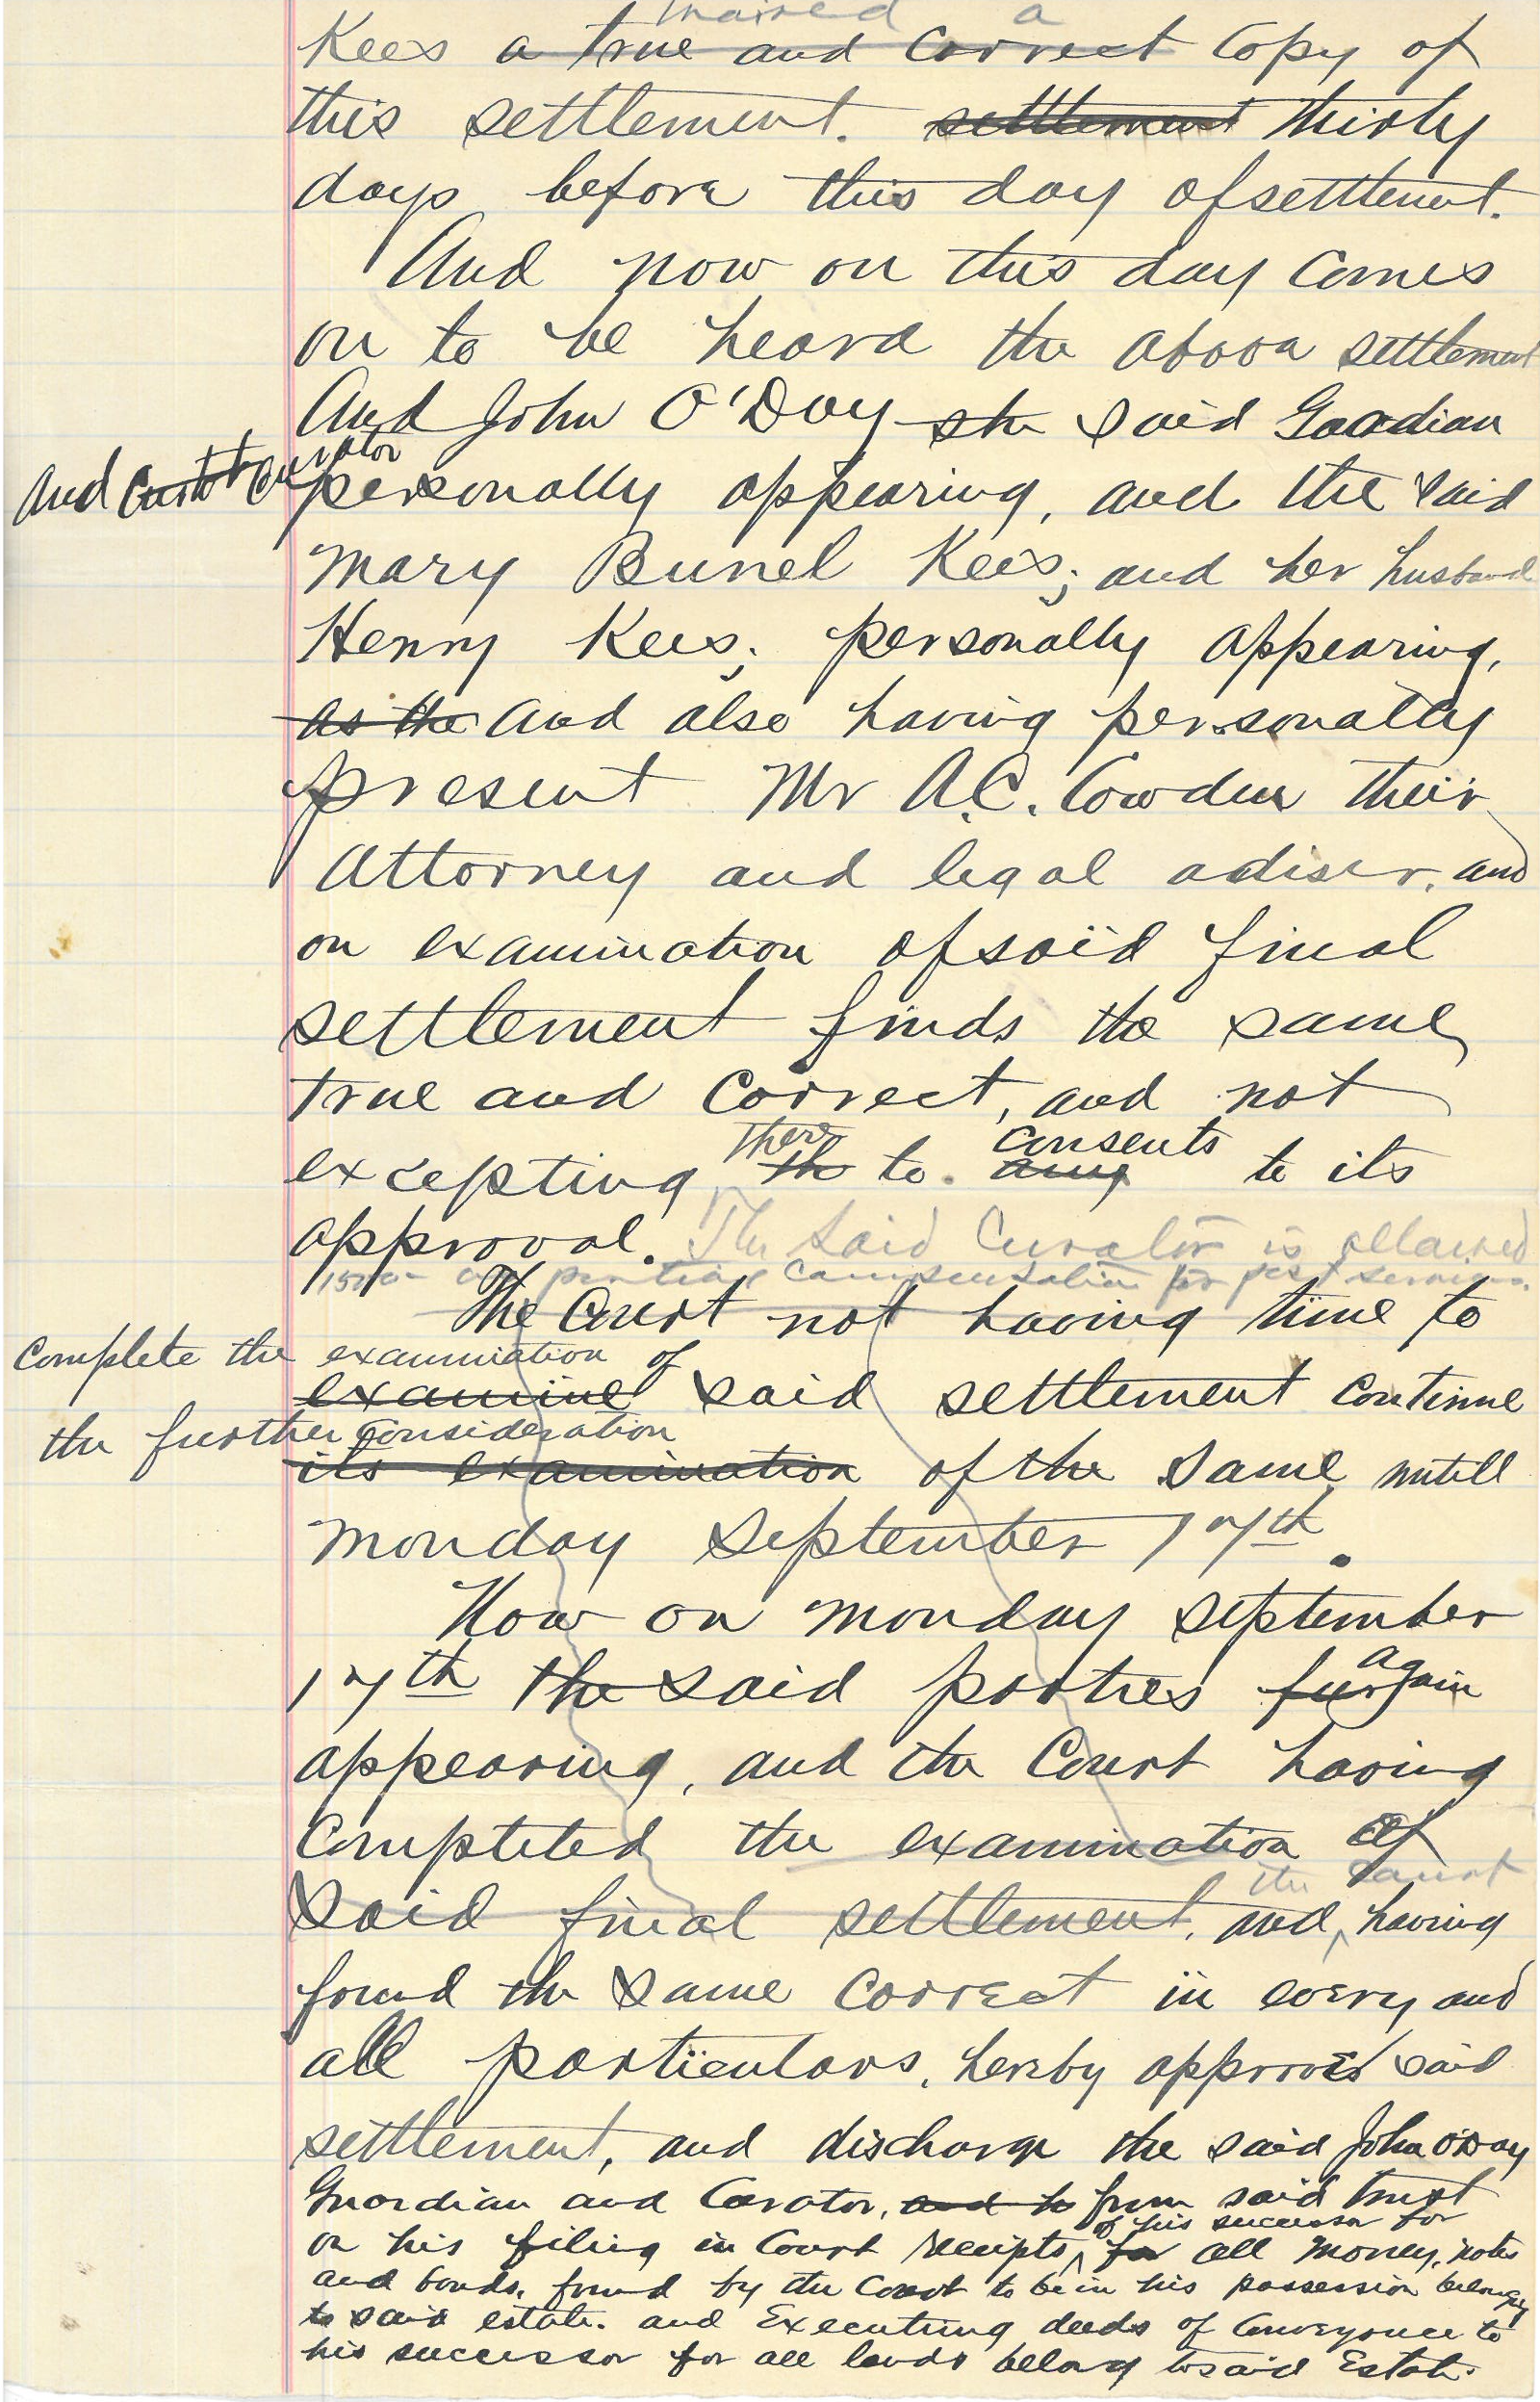 a
Kees a true and correct copy of
this settlement. settlement thirty
days before this day of settlement.
And now on this day comes
on to be heard the above settlement
And John O'Day sh said Guadian
and Curat Curator
personally appearing, and the said
Mary Bunel Kees; and her husband
Henry Kees; personally appearing,
as the and also having personally
present Mr A.C. Cowden their
Attorney and legal adiser, and
on examination of said final
settlement finds the same
true and correct, and not
there consents
excepting th to. any to its
approval. The said Curator is allowed
compensation for past services.
The Court not having time to
complete the examination of
examine said settlement continue
the further consideration
its examination of the same untill
Monday September 17th.
Now on Monday September
again
17th the said parties fur
appearing, and the Court having
Completed the examination of
the Court
said final settlement, and, having
found the same correct in every and
all particulars, hereby approves said
settlement, and discharge the said John O'Day
Guardian and Curator, and to from said trust
of his successor for
on his filing in Court receipts, for all money, notes
and bonds, found by the Court to be in his possession belonging
to said estate. and Executing deeds of Conveyance to
his successor for all lands belong to said Estate.